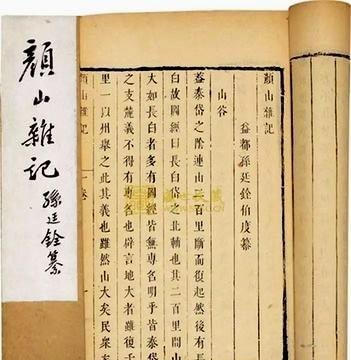 顏山雜記
孫廷銓纂
顏山雜記
益都孫廷銓伯度纂
山谷
葢泰岱之陰連山三百里斷而復起然後有長
白故圖經曰長白岱之北軸也其二百里間山
大如長白者多有圖經皆無専名明乎皆泰岱
之支麓義不得有専名也辟言地大者雖復千
里一以州舉之此其義也雖然山大矣民衆矣
顏山雜記
卷